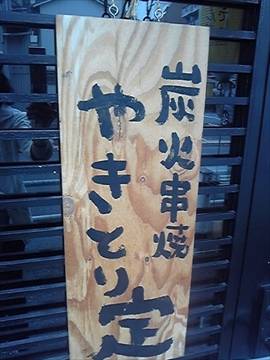 炭火串焼
やきとり定